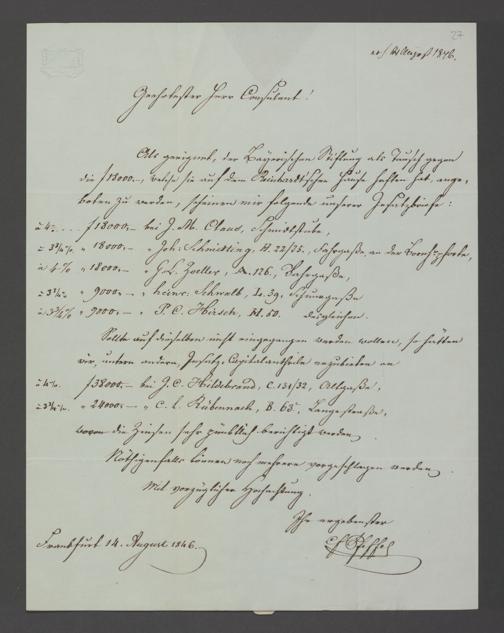 27
14 August 1846.
Geehrtester Herr Consulent!
Als geeignet, der Bayerischen Stiftung als Tausch gegen
die f 18000.-, welche sie auf dem Hause haften hat, ange-
boten zu werden, scheinen mir folgende unserer Insatzbriefe:
à 4% f 18000.- bei J. M. Claus, Schmidtstube,
" 3¾% " 18000.- " Joh. Schmidting, H. 22/25, Fahrgasse, an der
à 4% " 18000.- " Zoeller, A. 126, Fahrgasse,
" 3½% " 9000.- " Heinr. Schwalb, L. 39,
" 3¾% " 9000.- " P. C. Hirsch, M. 50. desgleichen.
Sollte auf dieselben nicht eingegangen werden wollen, so hätten
wir, unter andern, Insatz-Capitalantheile anzubieten an
à 4% f 38000.- bei J. C. Hildebrand, C. 131/32,
" 3¾% " 24000.- " C. L. Rübenach, B. 65, Langestrasse,
wovon die Zinsen sehr pünktlich berichtigt werden.
Nöthigenfalls können noch mehrere vorgeschlagen werden.
Mit vorzüglicher Hochachtung.
Ihr ergebenster
Frankfurt 14. August 1846.